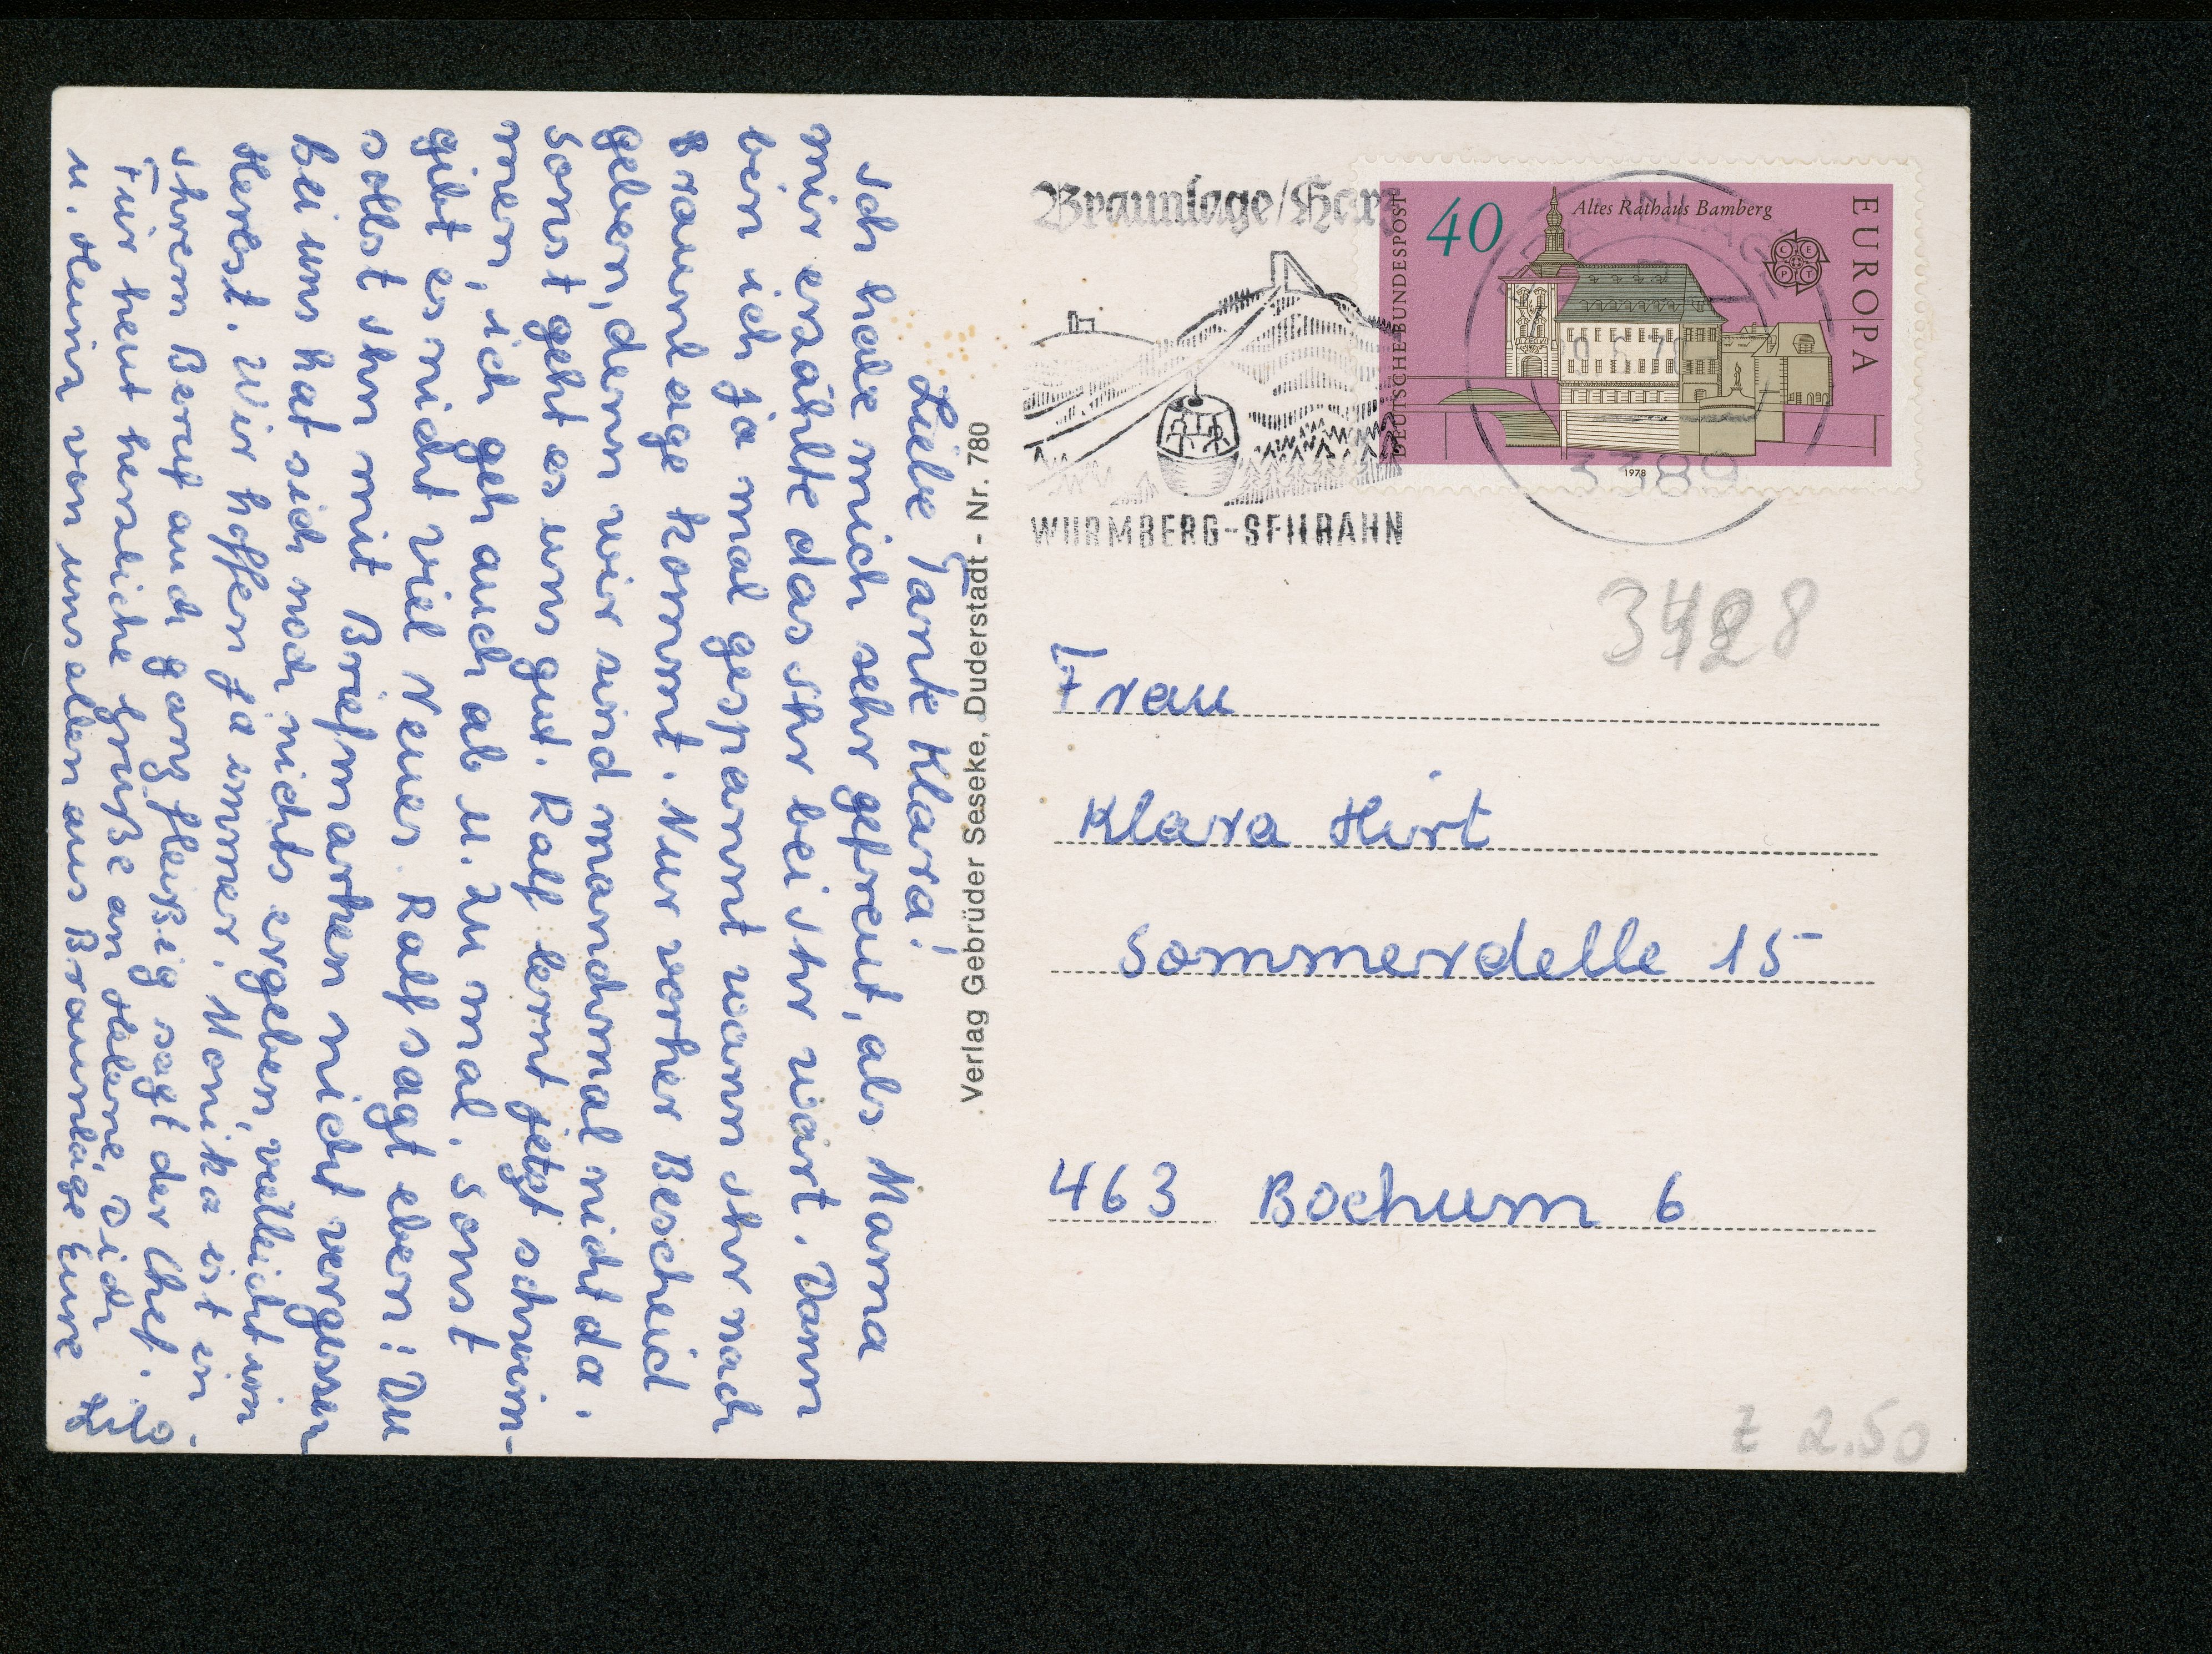 Liebe Tante Klara!
Ich habe mich sehr gefreut, als Mama
mir erzählte das Ihr bei Ihr wart. Dann
bin ich ja mal gespannt wann Ihr nach
Braunlage kommt. Nur vorher Bescheid
geben, denn wir sind manchmal nicht da.
Sonst geht es uns gut. Ralf lernt jetzt schwim-
men, ich geh auch ab u. zu mal. Sonst
gibt es nicht viel Neues. Ralf sagt eben: Du
sollst Ihn mit Briefmarken nicht vergessen
bei uns hat sich noch nichts ergeben, vielleicht im
Herbst. Wir hoffen ja immer. Monika ist in
Ihrem Beruf auch ganz fleißig sagt der Chef.
Für heut herzliche Grüße an Helene, Dich
u. Heinz von uns allen aus Braunlage Eure
Verlag Gebrüder Seseke, Duderstadt - Nr. 780
Braunlage/Harz
WURMBERG-SEILBAHN
DEUTSCHE BUNDESPOST
40
Altes Rathaus Bamberg
CEPT
EUROPA
1978
BRAUNLAGE
3389
3428
Frau
Klara Hirt
Sommerdelle 15
463 Bochum 6
Z 2.50